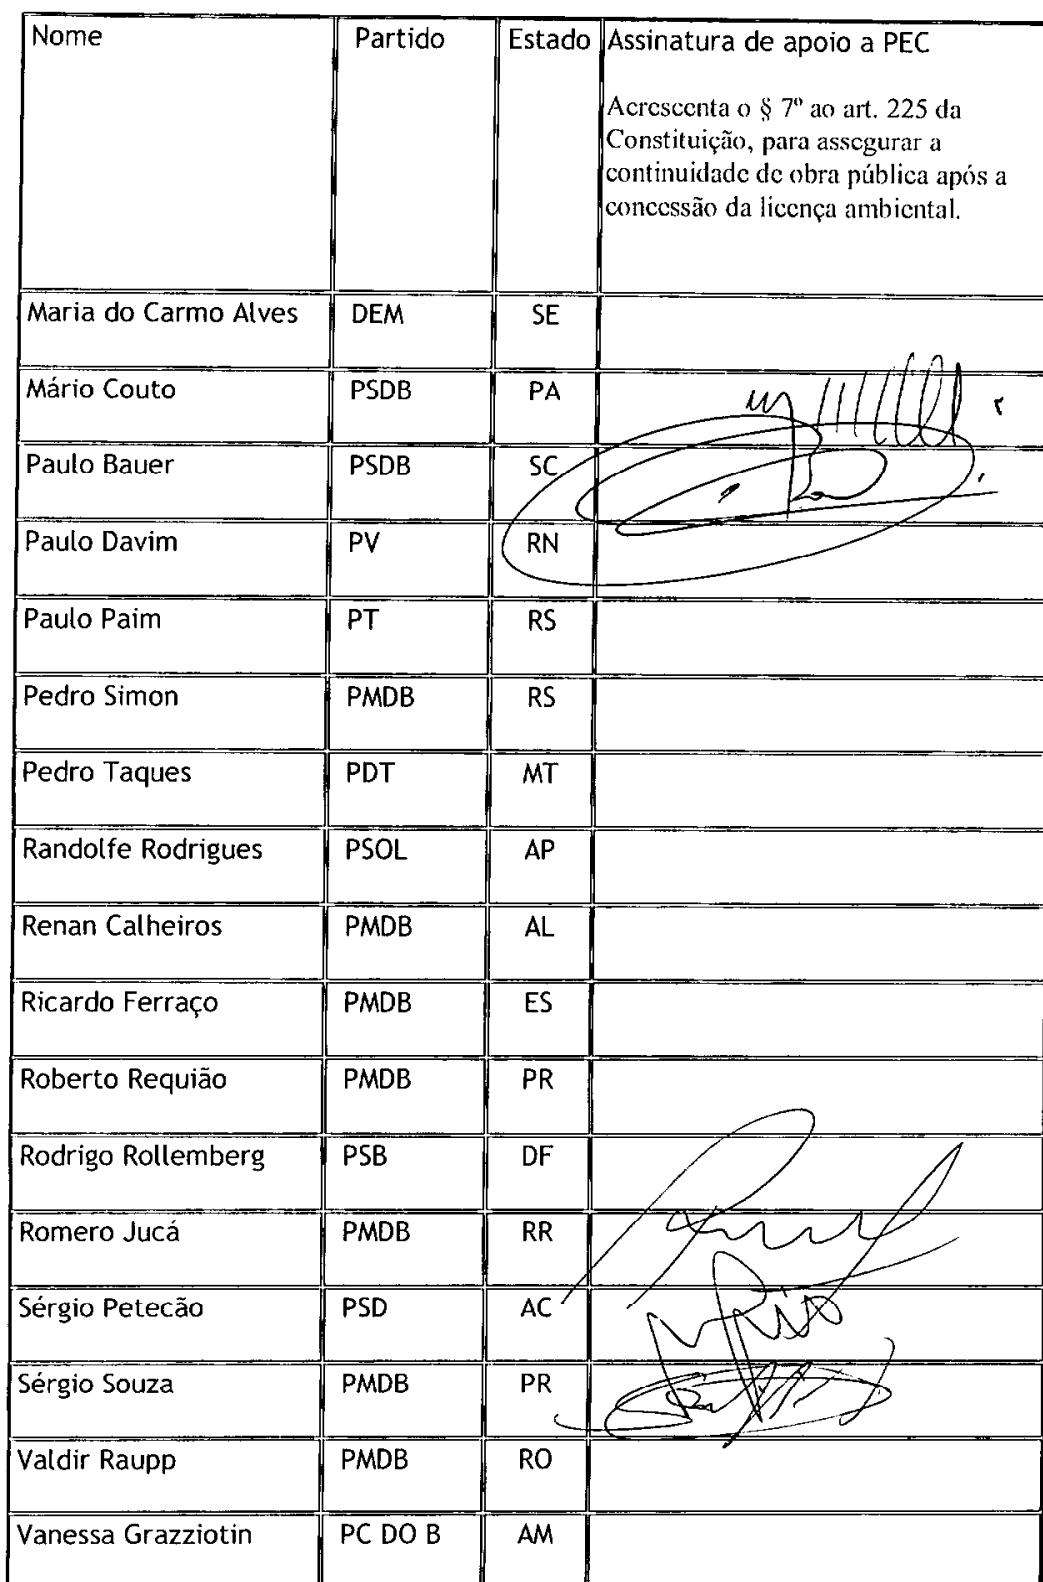 Nome Partido Estado Assinatura de apoio a PEC
Acrescenta o § 7º ao art. 225 da
Constituição, para assegurar a
continuidade de obra pública após a
concessão da licença ambiental.
Maria do Carmo Alves DEM SE
Mário Couto PSDB PA
Paulo Bauer PSDB SC
Paulo Davim PV RN
Paulo Paim PT RS
Pedro Simon PMDB RS
Pedro Taques PDT MT
Randolfe Rodrigues PSOL AP
Renan Calheiros PMDB AL
Ricardo Ferraço PMDB ES
Roberto Requião PMDB PR
Rodrigo Rollemberg PSB DF
Romero Jucá PMDB RR
Sérgio Petecão PSD AC
Sérgio Souza PMDB PR
Valdir Raupp PMDB RO
Vanessa Grazziotin PC DO B AM